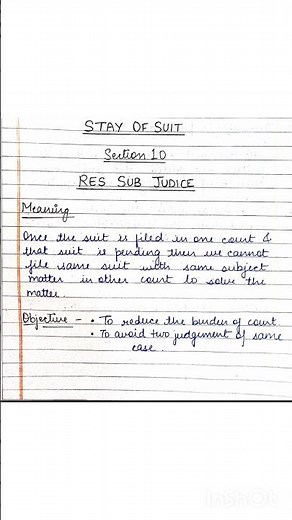 STAY OF SUIT
Section 10
RES SUB JUDICE
Meaning
Once the suit is filed in one court &
that suit is pending then we cannot
file same suit with same subject
matter in other court to solve the
matter.
Objective - • To reduce the burden of court
• To avoid two judgement of same
case.